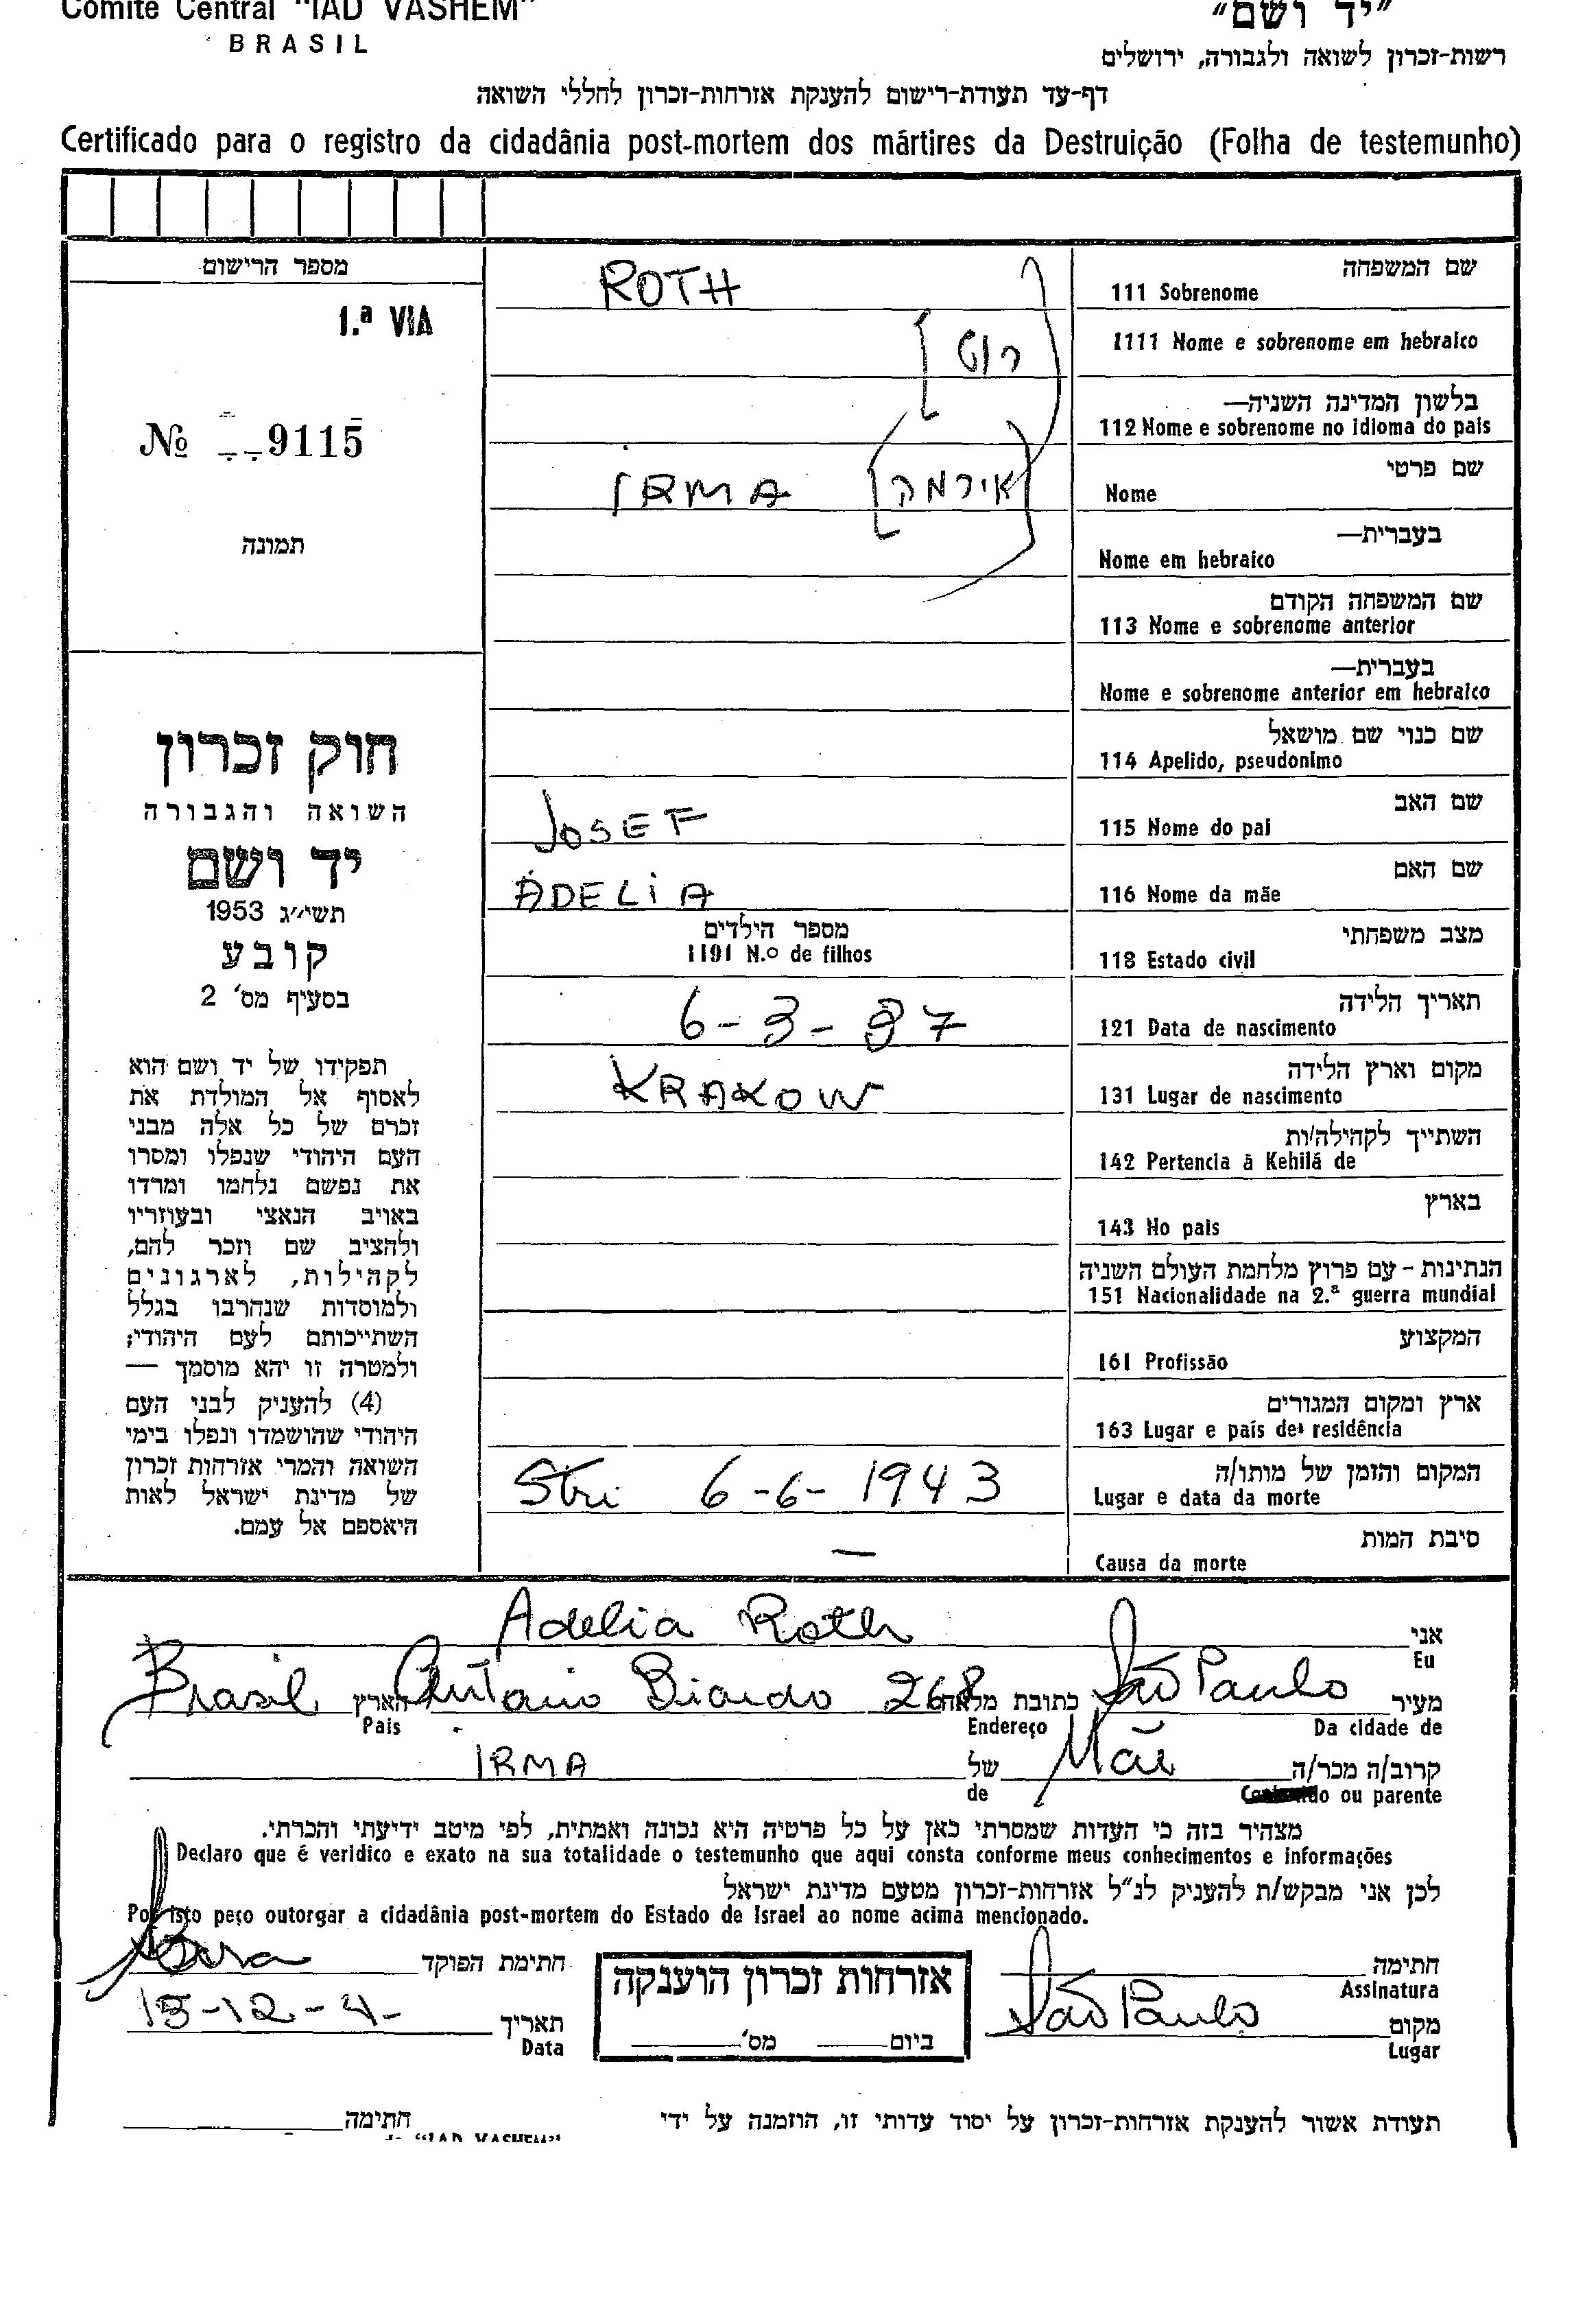 Comité Central "IAD VASHEM"
BRASIL
"יד ושם"
רשות-זכרון לשואה ולגבורה, ירושלים
דף-עד תעודת-רישום להענקת אזרחות-זכרון לחללי השואה
Certificado para o registro da cidadânia post-mortem dos mártires da Destruição (Folha de testemunho)
מספר הרישום
1.ª VIA
№ 9115
תמונה
חוק זכרון
השואה והגבורה
יד ושם
תשי״ג 1953
קובע
בסעיף מס' 2
תפקידו של יד ושם הוא
לאסוף אל המולדת את
זכרם של כל אלה מבני
העם היהודי שנפלו ומסרו
את נפשם נלחמו ומרדו
באויב הנאצי ובעוזריו
ולהציב שם וזכר להם,
לקהילות, לארגונים
ולמוסדות שנהרבו בגלל
השתייכותם לעם היהודי;
ולמטרה זו יהא מוסמך —
(4) להעניק לבני העם
היהודי שהושמדו ונפלו בימי
השואה והמרי אזרחות זכרון
של מדינת ישראל לאות
היאספם אל עמם.
שם המשפחה
111 Sobrenome ROTH
1111 Nome e sobrenome em hebraico רוט
בלשון המדינה השניה—
112 Nome e sobrenome no idioma do pais
שם פרטי
Nome IRMA אירמה
בעברית—
Nome em hebraico
שם המשפחה הקודם
113 Nome e sobrenome anterior
בעברית—
Nome e sobrenome anterior em hebraico
שם כנוי שם מושאל
114 Apelido, pseudonimo
שם האב
115 Nome do pai JOSEF
שם האם
116 Nome da mãe ADELIA
מצב משפחתי מספר הילדים
118 Estado civil 1191 N.º de filhos
תאריך הלידה
121 Data de nascimento 6-3-37
מקום וארץ הלידה
131 Lugar de nascimento KRAKOW
השתייך לקהילה/ות
142 Pertencia à Kehilá de
בארץ
143 No pais
הנתינות - עם פרוץ מלחמת העולם השניה
151 Nacionalidade na 2.ª guerra mundial
המקצוע
161 Profissão
ארץ ומקום המגורים
163 Lugar e país de residência
המקום והזמן של מותו/ה
Lugar e data da morte Stri 6-6-1943
סיבת המות
Causa da morte —
אני Adelia Roth
Eu
מעיר São Paulo כתובת מלאה 268 הארץ Brasil
Da cidade de Endereço Pais
קרוב/ה מכר/ה Mãe של IRMA
ou parente de
מצהיר בזה כי העדות שמסרתי כאן על כל פרטיה היא נכונה ואמתית, לפי מיטב ידיעתי והכרתי.
Declaro que é veridico e exato na sua totalidade o testemunho que aqui consta conforme meus conhecimentos e informações
לכן אני מבקש/ת להעניק לנ"ל אזרחות-זכרון מטעם מדינת ישראל
Por isto peço outorgar a cidadânia post-mortem do Estado de Israel ao nome acima mencionado.
חתימה
Assinatura
חתימת הפוקד
אזרחות זכרון הוענקה
ביום מס'
מקום São Paulo
Lugar
תאריך
Data
תעודת אשור להענקת אזרחות-זכרון על יסוד עדותי זו, הוזמנה על ידי
חתימה
"IAD VASHEM"